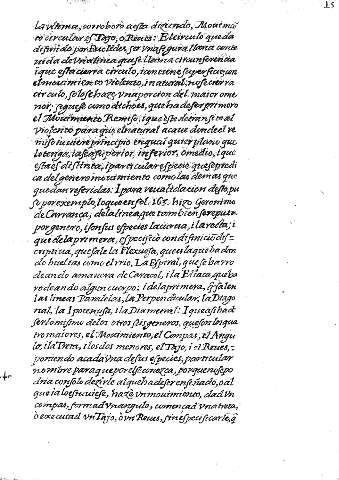 15
la ultima, corroborò aesta diziendo, Movimiẽ
to circular es Tajo, o Reves: El circulo queda
difinido por Euclides, ser vna figura llana conte
nida de vna linea que se llama circunferencia
i que esta cierra circulo, i contiene superficie, con
el movimiento violento, i natural, no se cierra
circulo, solo se haze vna porcion del maior ò me
nor; siguese como dichoes, que ha de ser primero
el Movimiento Remiso, i que este de transito al
violento para que el natural acave donde el re
miso tuviere principio en qual quier plano que
lo tenga, ia sea superior, inferior, ò medio, i que
esta es difinida, i particular especie que se predi
ca del genero movimiento como las demas que
quedan referidas. I para revalidacion desto pu
so por exemplo, lo que en fol. 165. hizo Geronimo
de Carrança, de la linea que tambien se reputa
por genero, i son sus especies la curva, i la recta; i
que de la primera, especificò con difinicion dis-
criptiva, que sale la Flexuosa, que es la que ha dan
do bueltas como el rio, La Espiral, que se ba
rodeando amanera de Caracol, i la Elíaca que ba
rodeando algun cuerpo; i de la primera, q̃ salen
las lineas Paralelas, la Perpendicular, la Diago
nal, la Ipotenusa, i la Diametral: I que asi ha de
ser lo mismo de los otros seis generos, que son los qua
tro maiores, el Movimiento, el Compas, el Angu
lo, i la Treta, i los dos menores, el Tajo, i el Reves,
poniendo a cada vna de sus especies, particular
nombre para que por el se conozca, porque no se po
dria con solo dezirle al que ha de ser enseñado, o al
que ia lo estuviese, haze vn movimiento, dad vn
compas, formad vn angulo, començad vna treta,
ò executad vn Tajo, ò vn Reves, sin especificarle, q̃